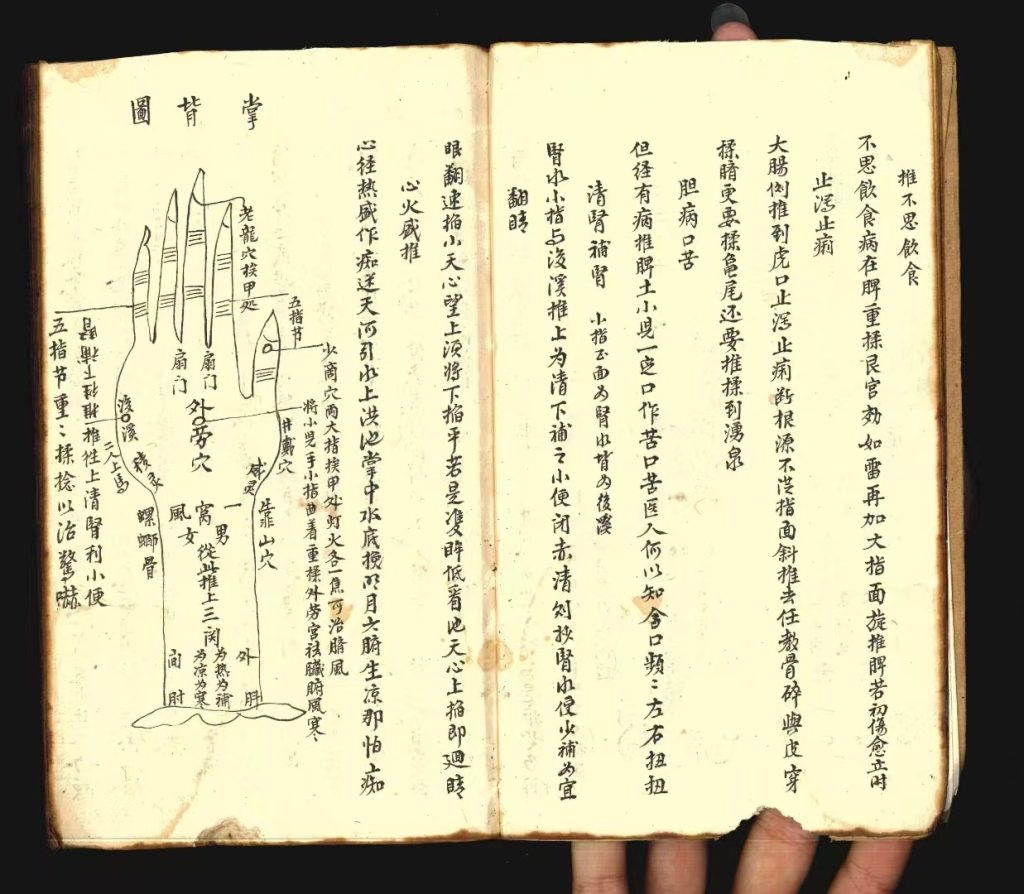 推不思飲食
不思飲食病在脾重揉艮宮効如雷再加大指面旋推脾若初傷愈立时
止瀉止痢
大腸側推到虎口止瀉止痢断根源不从指面斜推去任教骨碎與皮穿
揉臍更要揉龜尾还要推揉到湧泉
胆病口苦
但经有病推脾土小児一定口作苦口苦医人何以知合口頻〻左右扭扭
清腎補腎 小指正面为腎水背为後溪
腎水小指与後溪推上为清下補之小便闭赤清
翻睛
眼翻速掐小天心望上须将下掐平若是雙眸低看地天心上掐即廻睛
心火盛推
心径热盛作痴迷天河引水上洪池掌中水底撈明月六腑生凉那怕痴
掌背圖
老龍穴挨甲処
五指节
少商穴両大指挨甲外灯火各一焦可治臍風
将小児手小指曲着重揉外劳宮祛臟腑風寒
扇门
扇门
外劳穴
後溪
二人上馬
威灵
靠山穴
螺螄骨
一窝風
男
女
從此推上三関
为热为補
为凉为寒
外
间
肘
推性上清腎利小便
五指节重〻揉捻以治驚嚇